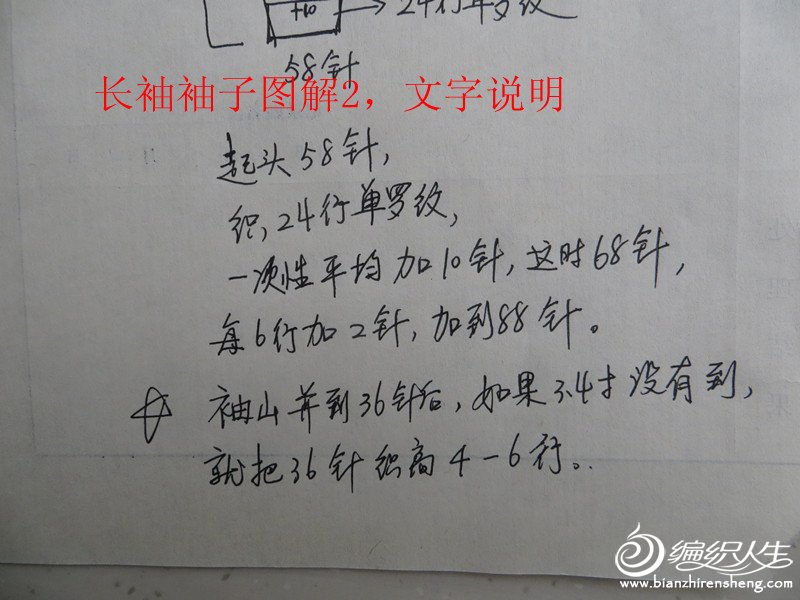 +10
24行单罗纹
58针
长袖袖子图解2，文字说明
起头58针，
织，24行单罗纹，
一次性平均加10针，这时68针，
每6行加2针，加到88针。
袖山并到36针后，如果3.4寸没有到，
就把36针织高4-6行。
编织人生
www.bianzhirensheng.com